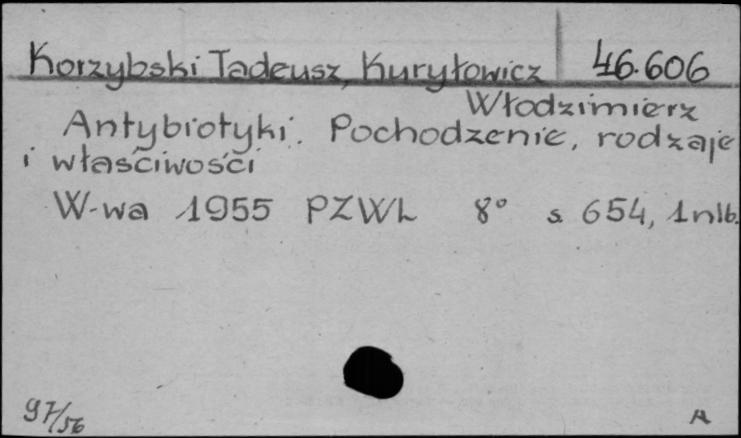 Korzybski Tadeusz, Kuryłowicz 46.606
Włodzimierz
Antybiotyki. Pochodzenie, rodzaje
i właściwości
W-wa 1955 PZWL 8° s. 654, 1 nlb.
97/56